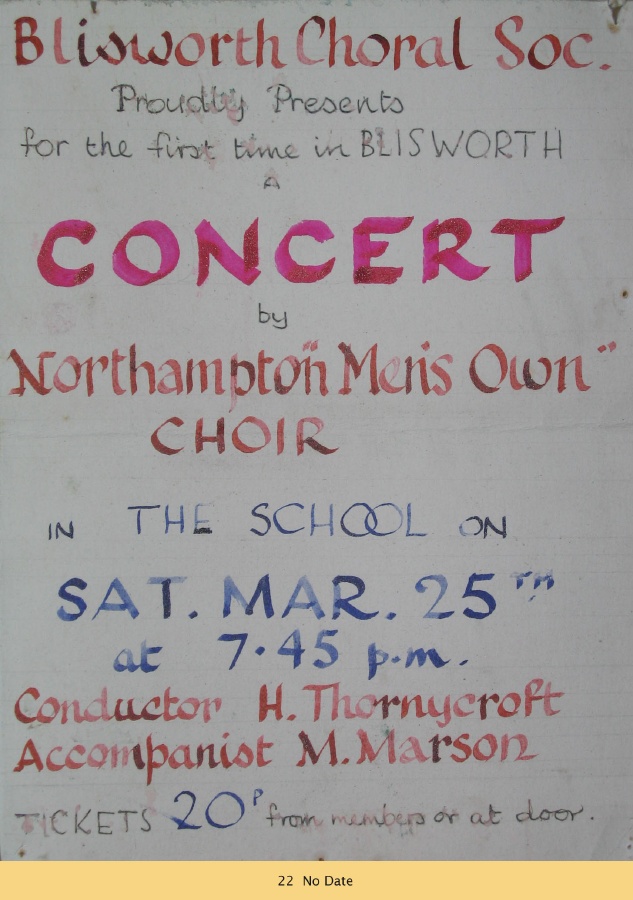 Blisworth Choral Soc.
Proudly Presents
for the first time in BLISWORTH
A
CONCERT
by
Northampton "Men's Own"
CHOIR
IN THE SCHOOL ON
SAT. MAR. 25TH
at 7.45 p.m.
Conductor H. Thornycroft
Accompanist M. Marson
TICKETS 20P from members or at door.
22 No Date